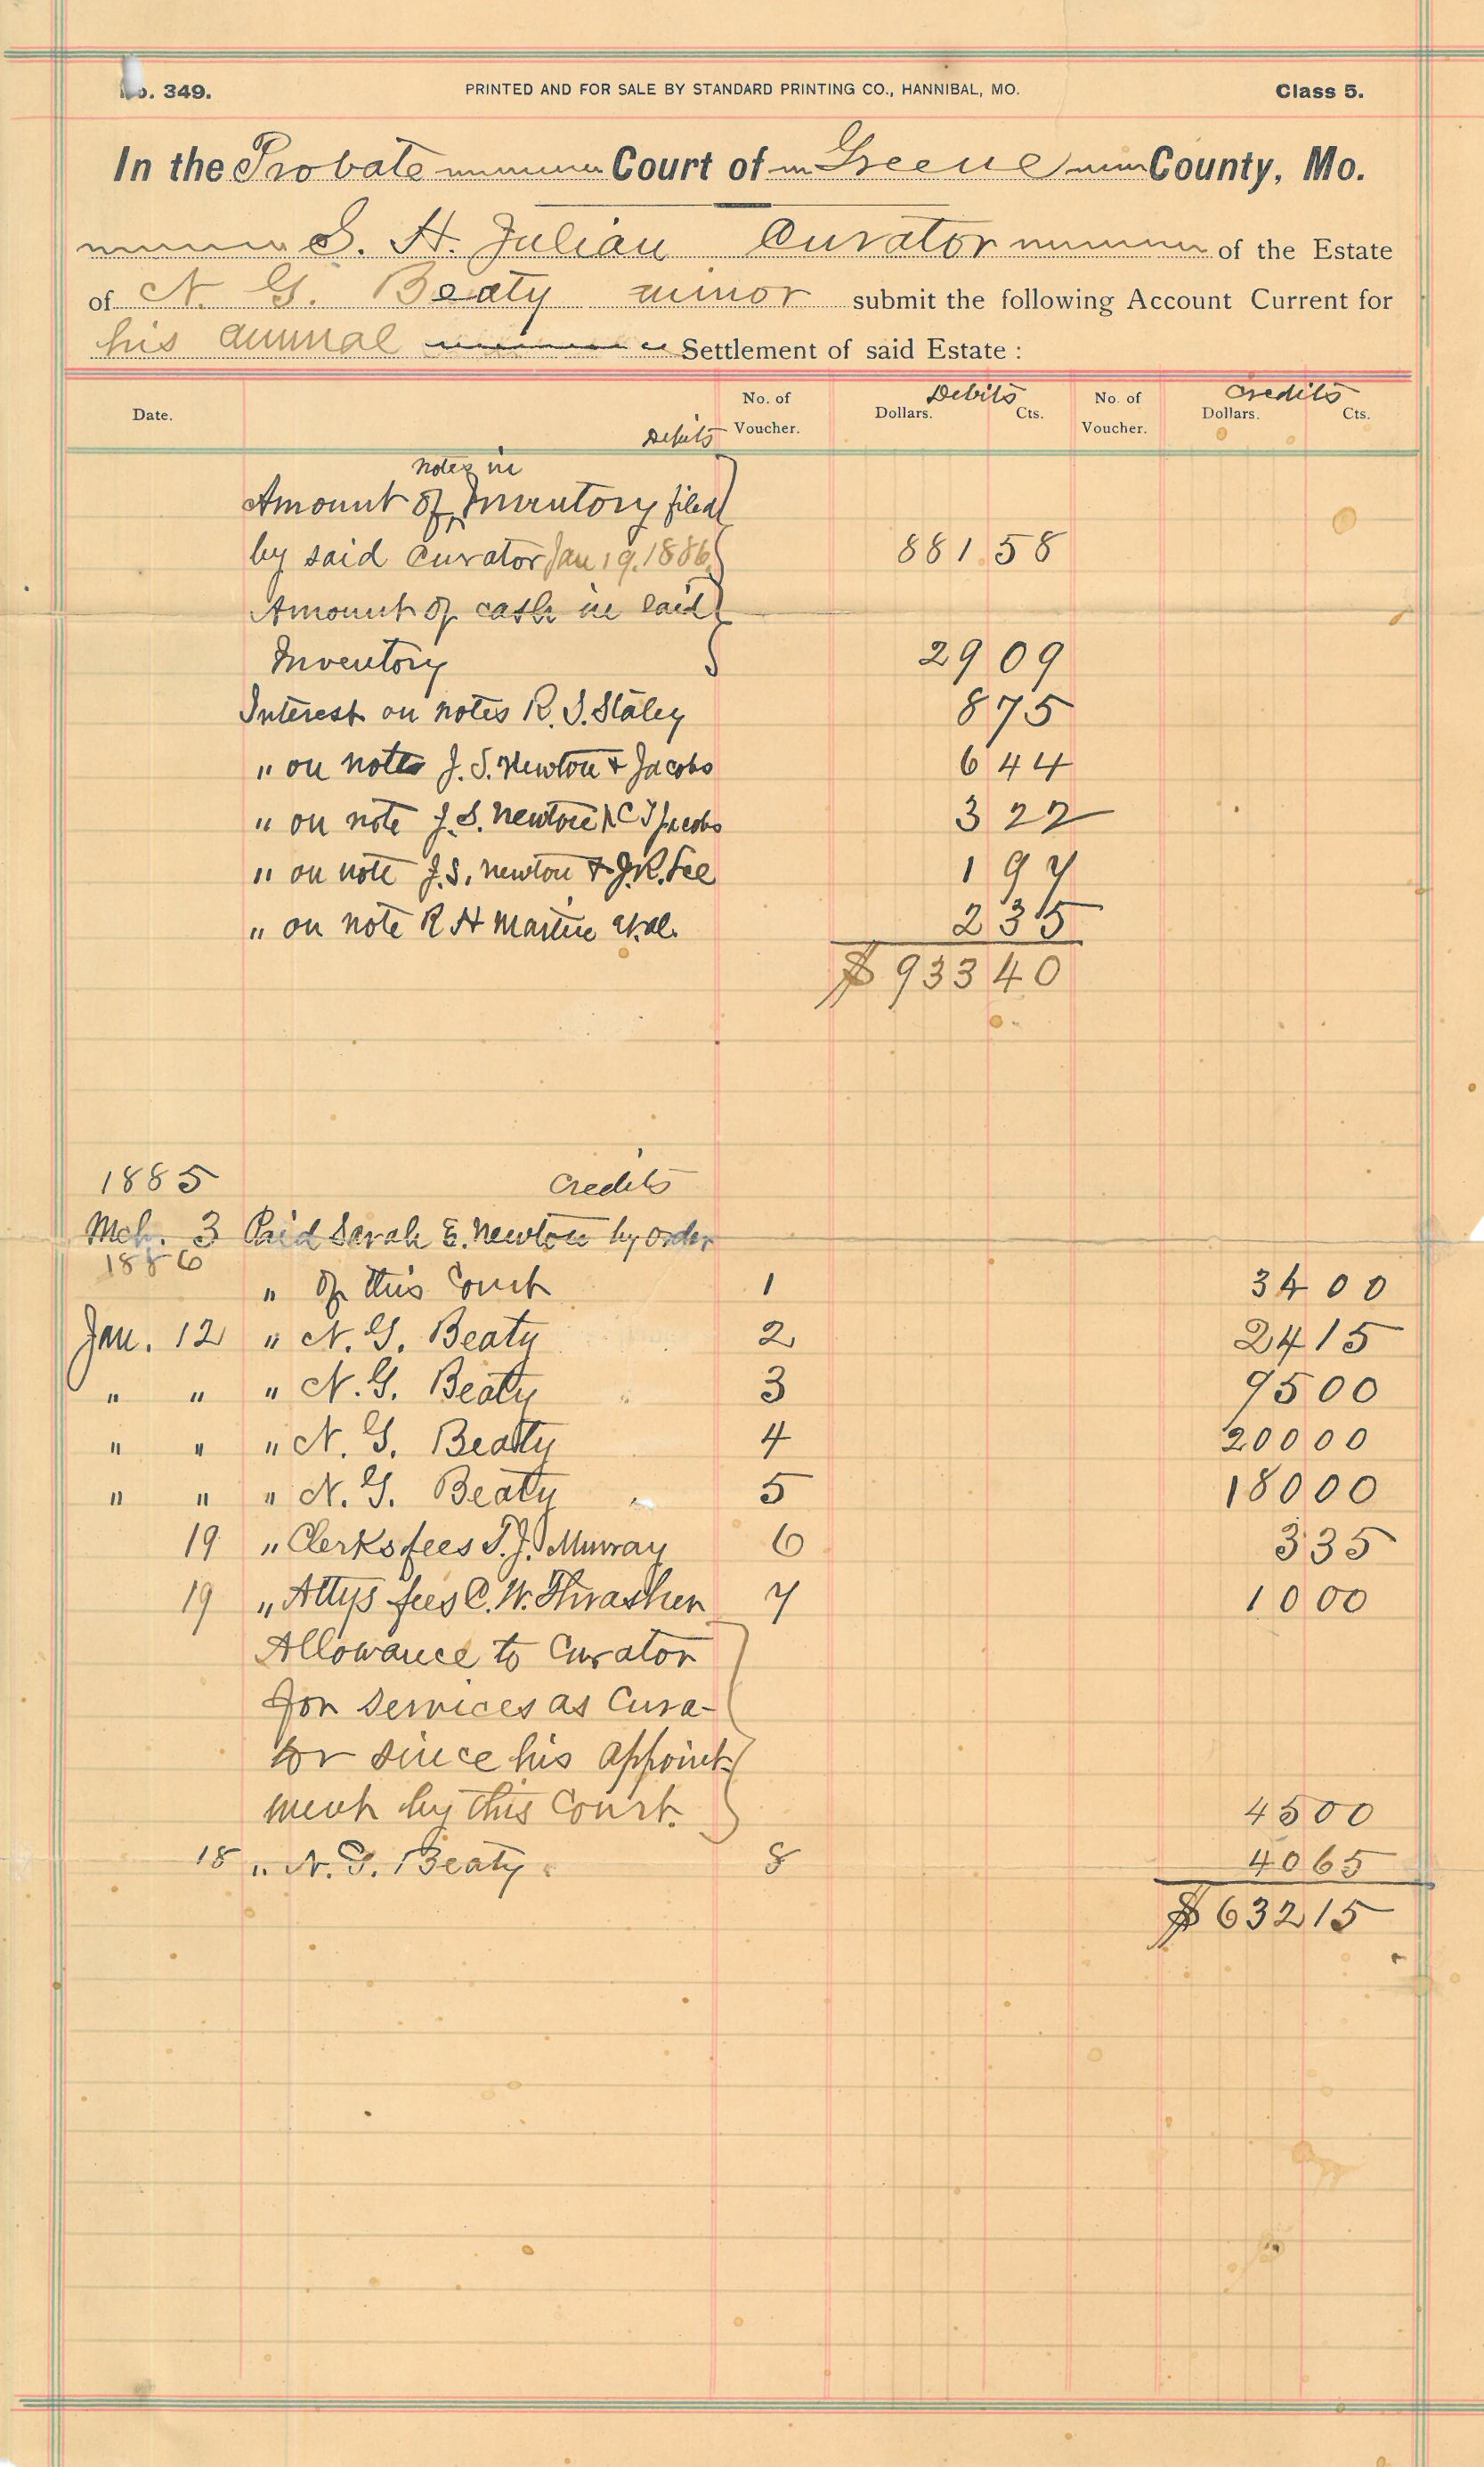 No. 349. PRINTED AND FOR SALE BY STANDARD PRINTING CO., HANNIBAL, MO. Class 5.
In the Probate Court of Greene County, Mo.
S. H. Julian Curator of the Estate
of N. G. Beaty minor submit the following Account Current for
his annual Settlement of said Estate :
Date. No. of Voucher. Debits Dollars. Cts. No. of Voucher. Credits Dollars. Cts.
Debits
notes in
Amount of Inventory filed
by said Curator Jan 19. 1886. 881.58
Amount of cash in said
Inventory 29 09
Interest on notes R. S. Staley 8 75
" on notes J. S. Newton & Jacobs 6 44
" on note J. S. Newton & C T Jacobs 3 22
" on note J. S. Newton & J. R. Lee 1 97
" on note R H Martin et. al. 2 35
$ 933 40
1885 Credits
Mch. 3 Paid Sarah E. Newton by order
1886
" of this Court 1 34 00
Jan. 12 " N. G. Beaty 2 24 15
" " " N. G. Beaty 3 95 00
" " " N. G. Beaty 4 200 00
" " " N. G. Beaty 5 180 00
19 " Clerks fees T. J. Murray 6 3 35
19 " Attys fees C. W. Thrasher 7 10 00
Allowance to Curator
for services as Cura-
tor since his appoint-
ment by this Court. 45 00
18 " N. G. Beaty. 8 40 65
$ 632 15